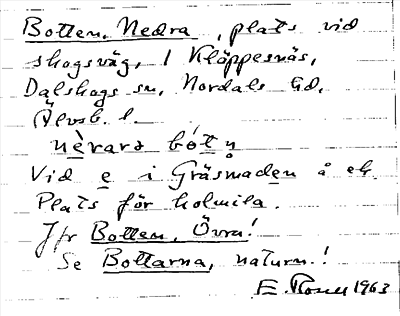 Botten, Nedra, plats vid
skogsväg, i Kläppesnäs,
Dalskogs sn, Nordals hd,
Älvsb. l.
nèrara bót n̥
Vid e i Gräsmaden å ek.
Plats för kolmila.
Jfr Botten, Övra!
Se Bottarna, naturn.!
E. 1963